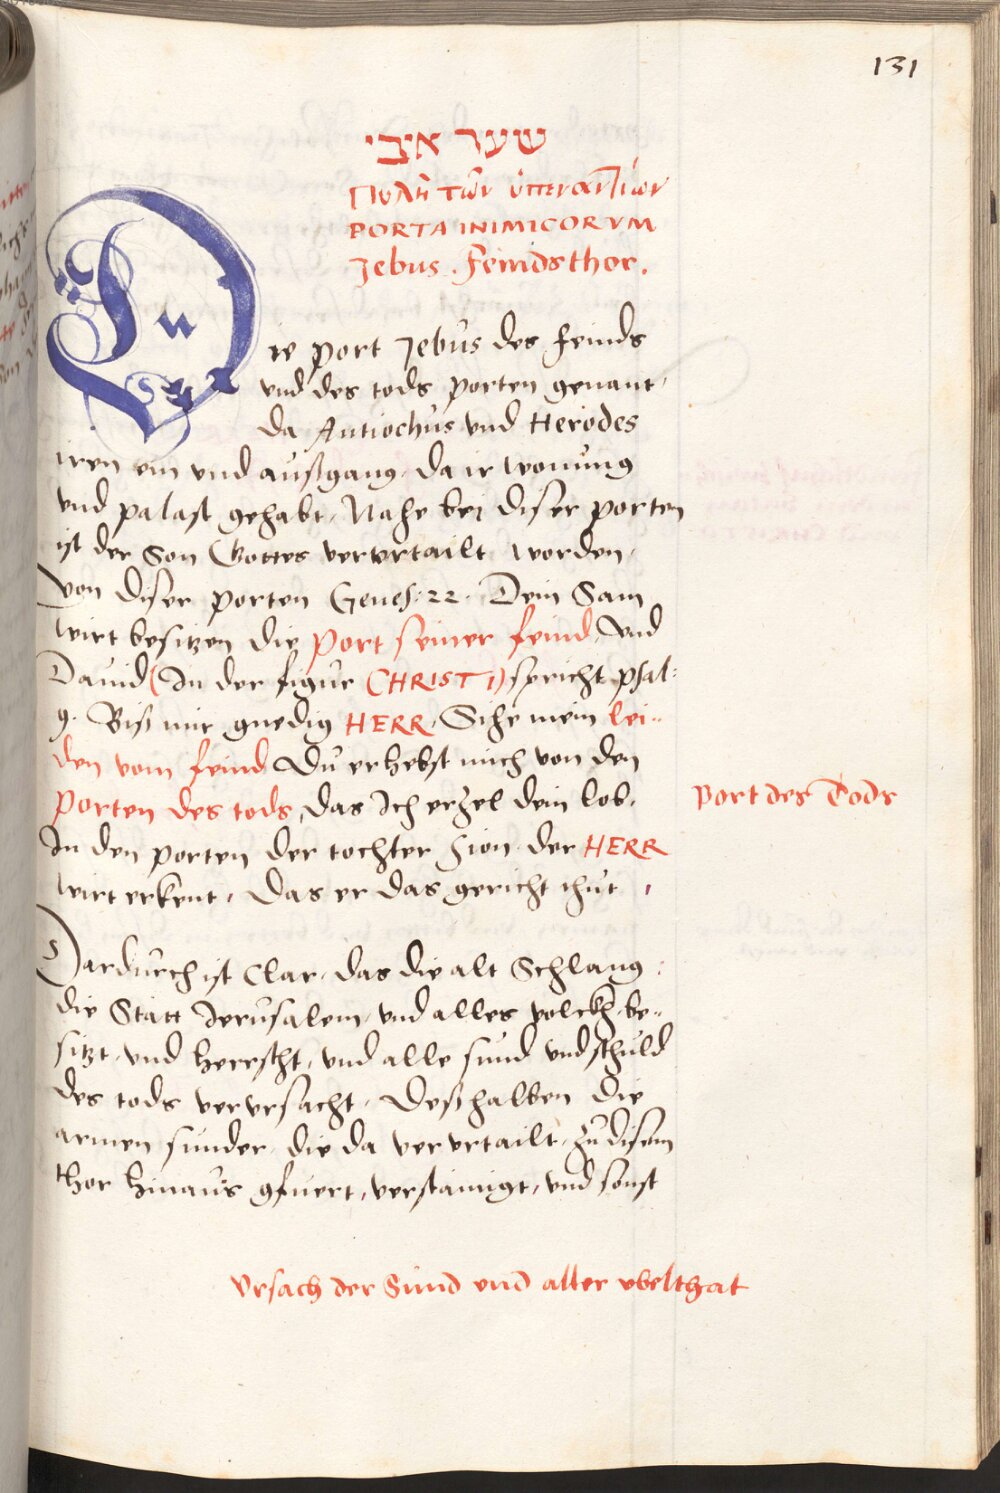 131
שער איבי
Πυλὴ τῶν ὑπεναντίων
PORTA INIMICORVM
Jebus . Feindsthor .
Die port Jebus des feinds
vnd des tods porten genant,
da Antiochus vnd Herodes
iren ein vnd außgang, da ir wonung
vnd palast gehabt, Nahe bei diser porten
ist der Son Gottes vervrtailt worden,
von diser porten Genes: 22. Dein Sam
wirt besitzen die port seiner feind, Vnd
Dauid (In der figur CHRISTI) spricht psal:
9. Biß mir gnedig HERR, Sihe mein lei=
den vom feind Du erhebst mich von den
porten des tods, das Ich erzel dein lob,
port des Tods
In den porten der tochter Sion, der HERR
wirt erkent, das er das gericht thut,
Dardurch ist Clar, das die alt Schlang,
die Statt Jerusalem, vnd alles volckh be=
sitzt, vnd herrscht, vnd alle sund vnd schuld
des tods vervrsacht, Deßhalben die
armen sunder, die da vervrtailt, zu disem
thor hinaus gfuert, verstainigt, vnd sonst
Vrsach der Sund vnd aller vbelthat